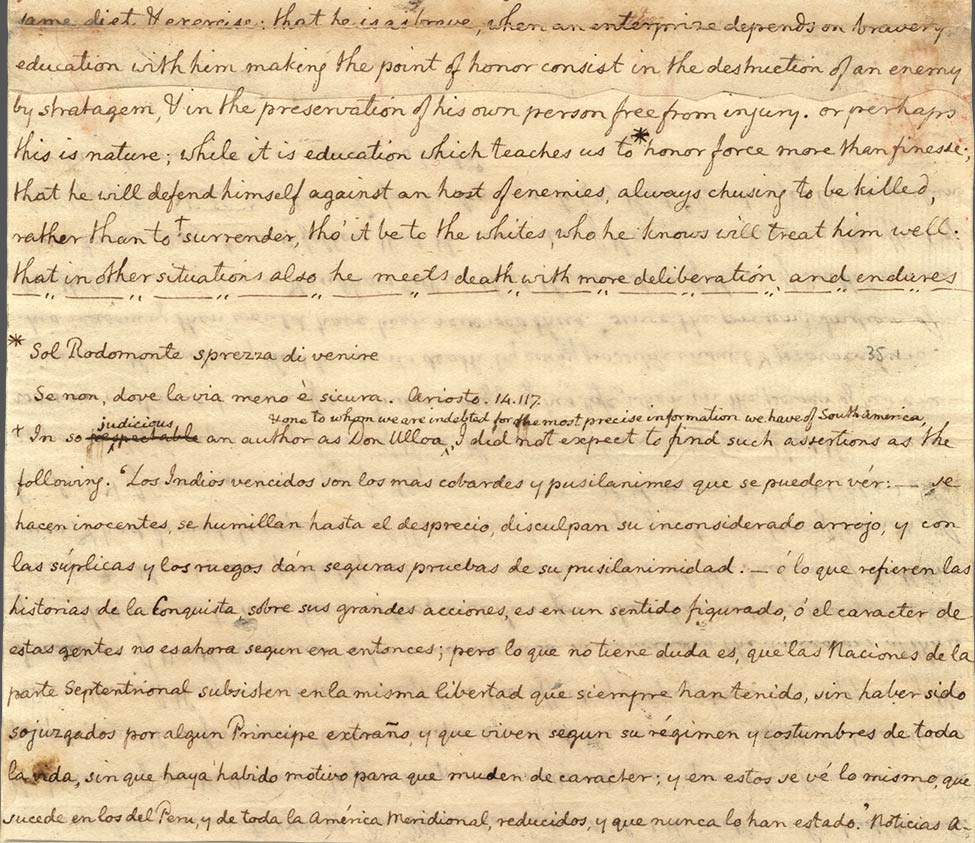 same diet & exercise: that he is as brave, when an enterprize depends on bravery
education with him making the point of honor consist in the destruction of an enemy
by stratagem, & in the preservation of his own person free from injury. or perhaps
this is nature; while it is education which teaches us to * honor force more than finesse:
that he will defend himself against an host of enemies, always chusing to be killed,
rather than to † surrender, tho' it be to the whites, who he knows will treat him well:
that in other situations also he meets death with more deliberation, and endures
* Sol Rodomonte sprezza di venire
35
Se non, dove la via meno è sicura. Ariosto. 14.117.
judicious & one to whom we are indebted for the most precise information we have of South america,
† In so respectable an author as Don Ulloa, I did not expect to find such assertions as the
following. 'Los Indios vencidos son los mas cobardes y pusilanimes que se pueden vér: — se
hacen inocentes, se humillan hasta el desprecio, disculpan su inconsiderado arrojo, y con
las súplicas y los ruegos dán seguras pruebas de su pusilanimidad. — ó lo que refieren las
historias de la Conquista sobre sus grandes acciones, es en un sentido figurado, ó el caracter de
estas gentes no es ahora segun era entonces; pero lo que no tiene duda es, que las Naciones de la
parte Septentrional subsisten en la misma libertad que siempre han tenido, sin haber sido
sojuzgados por algun Principe extraño, y que viven segun su régimen y costumbres de toda
la vida, sin que haya habido motivo para que muden de caracter; y en estos se vé lo mismo, que
sucede en los del Peru, y de toda la América Meridional, reducidos, y que nunca lo han estado.' Noticias A-